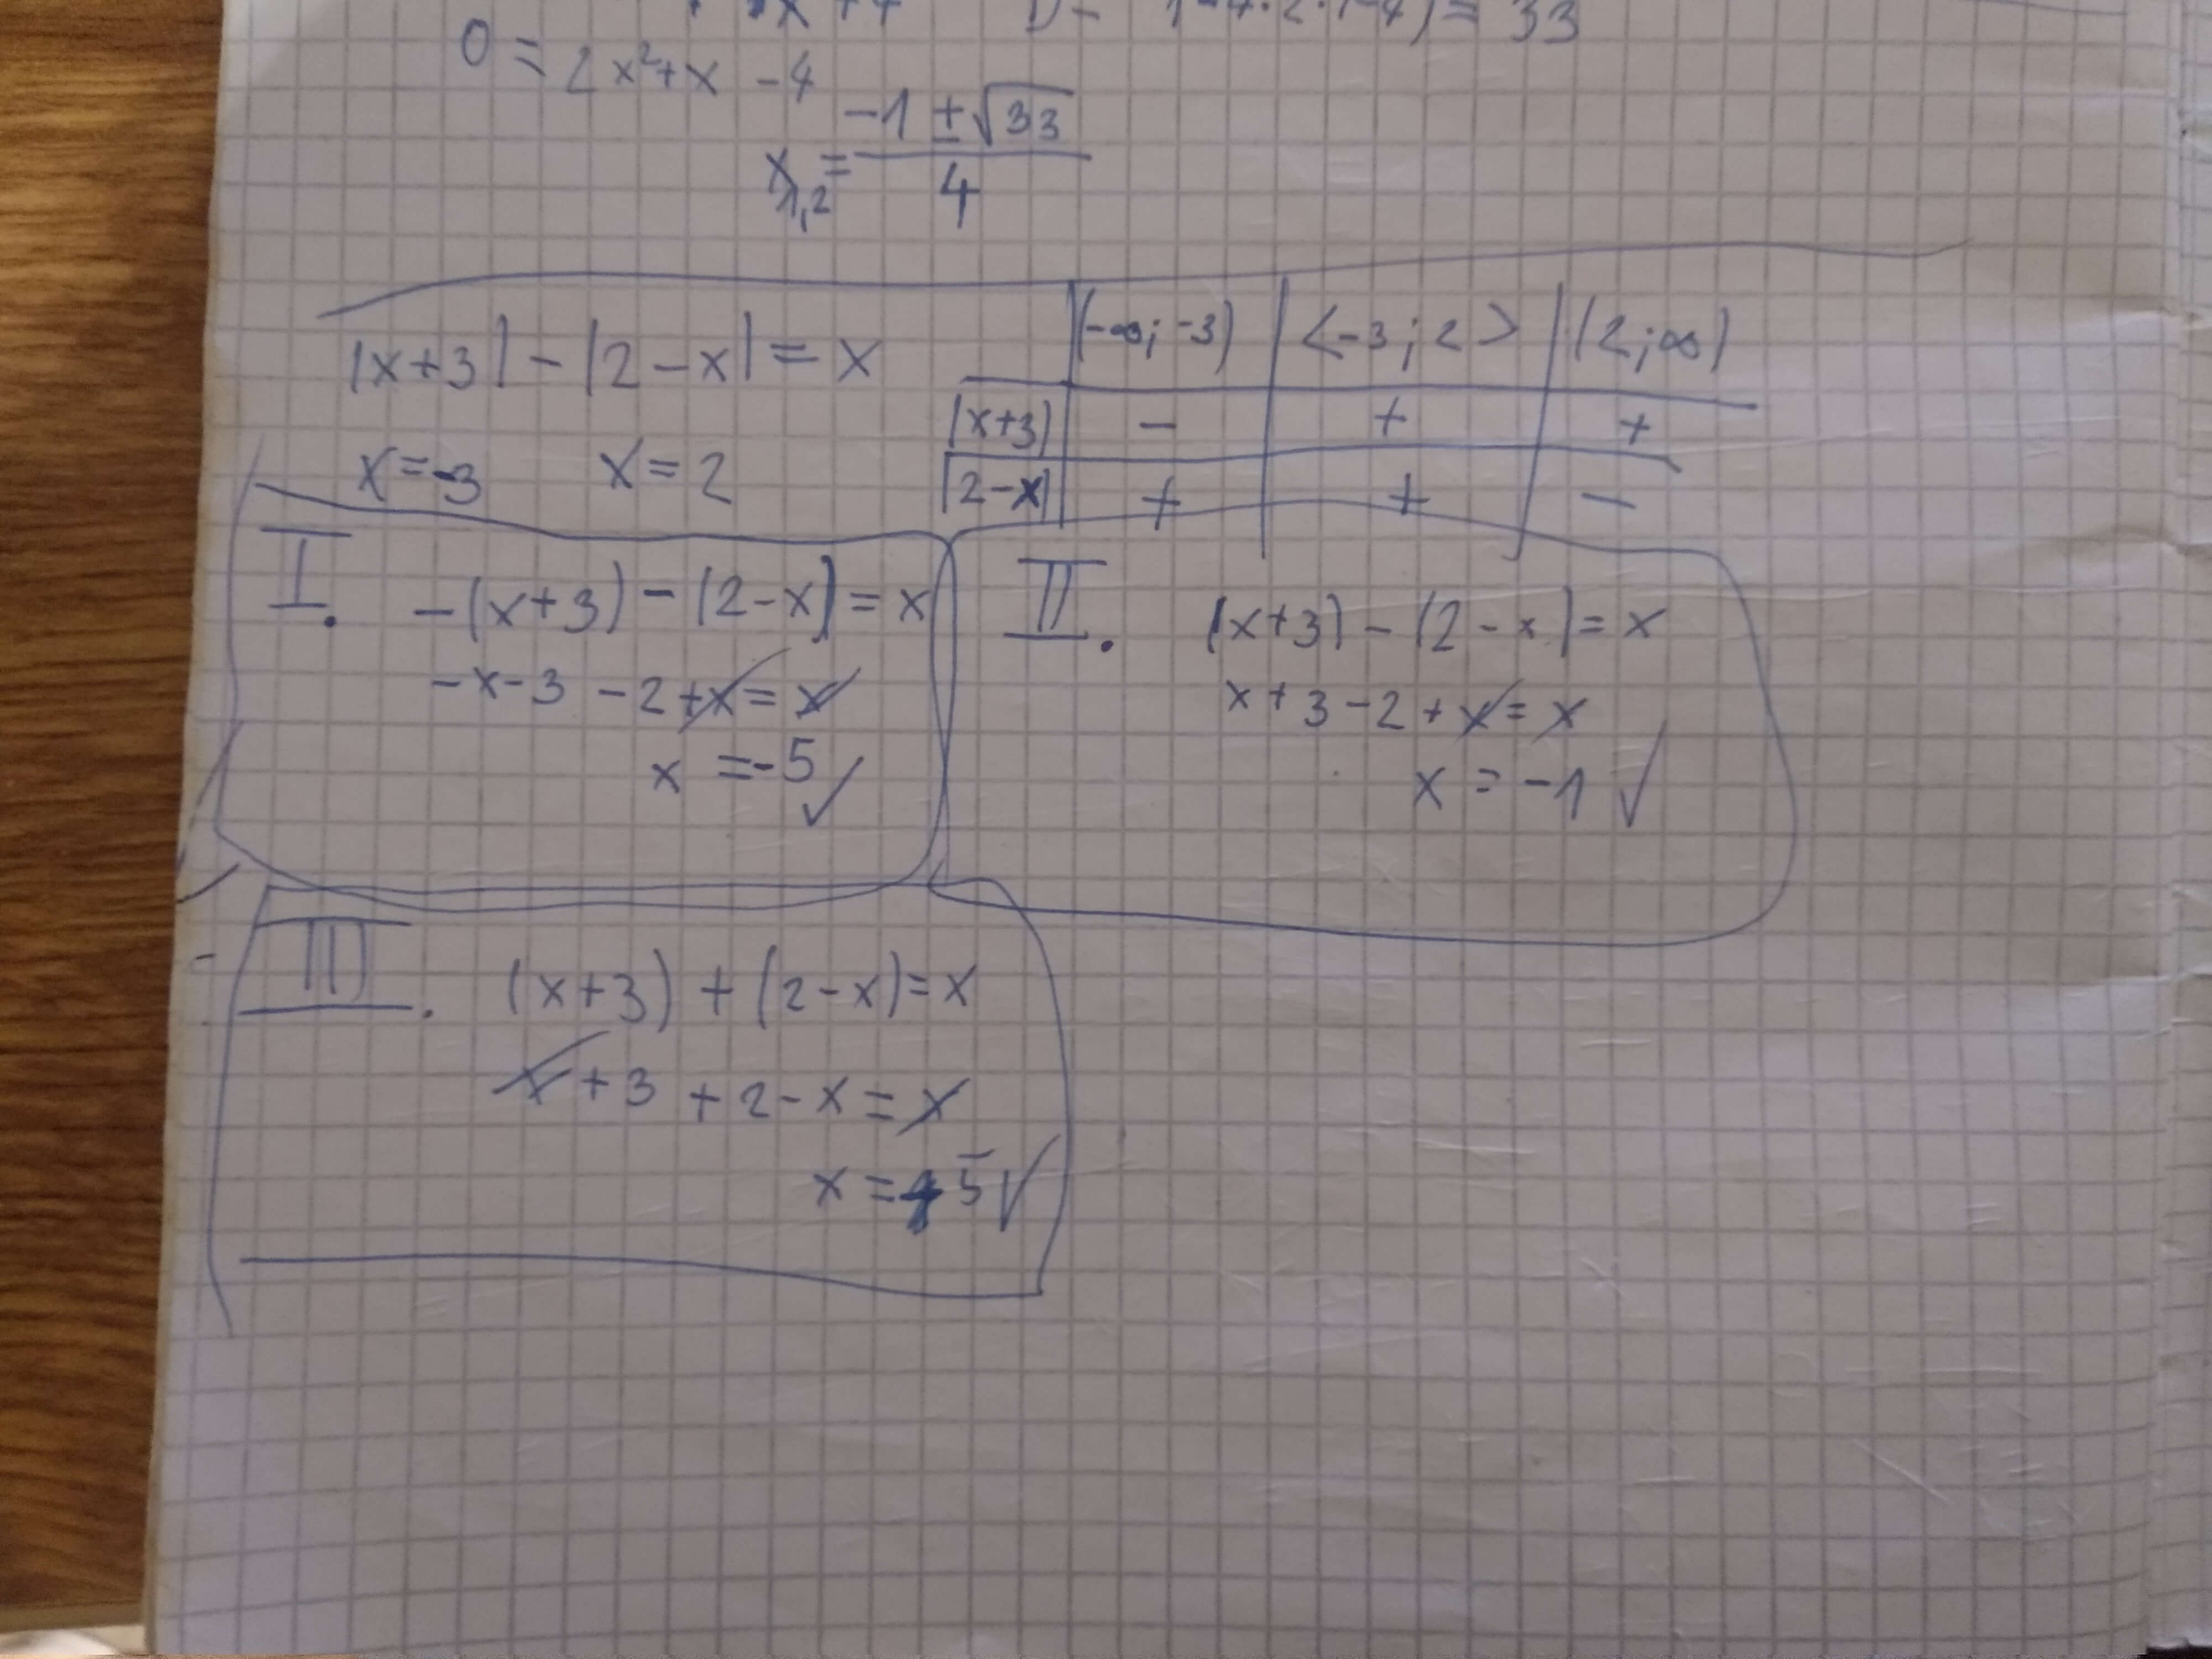 0 = 2x²+x -4
x₁,₂ = (-1 ± √33) / 4
|x+3| - |2-x| = x
x=-3 x=2
(-∞; -3) <-3; 2> (2; ∞)
|x+3| - + +
|2-x| + + -
I. -(x+3) - (2-x) = x
-x-3 -2+x = x
x = -5 ✓
II. (x+3) - (2-x) = x
x+3-2+x = x
x = -1 ✓
III. (x+3) + (2-x) = x
x+3 +2-x = x
x = 5 ✓